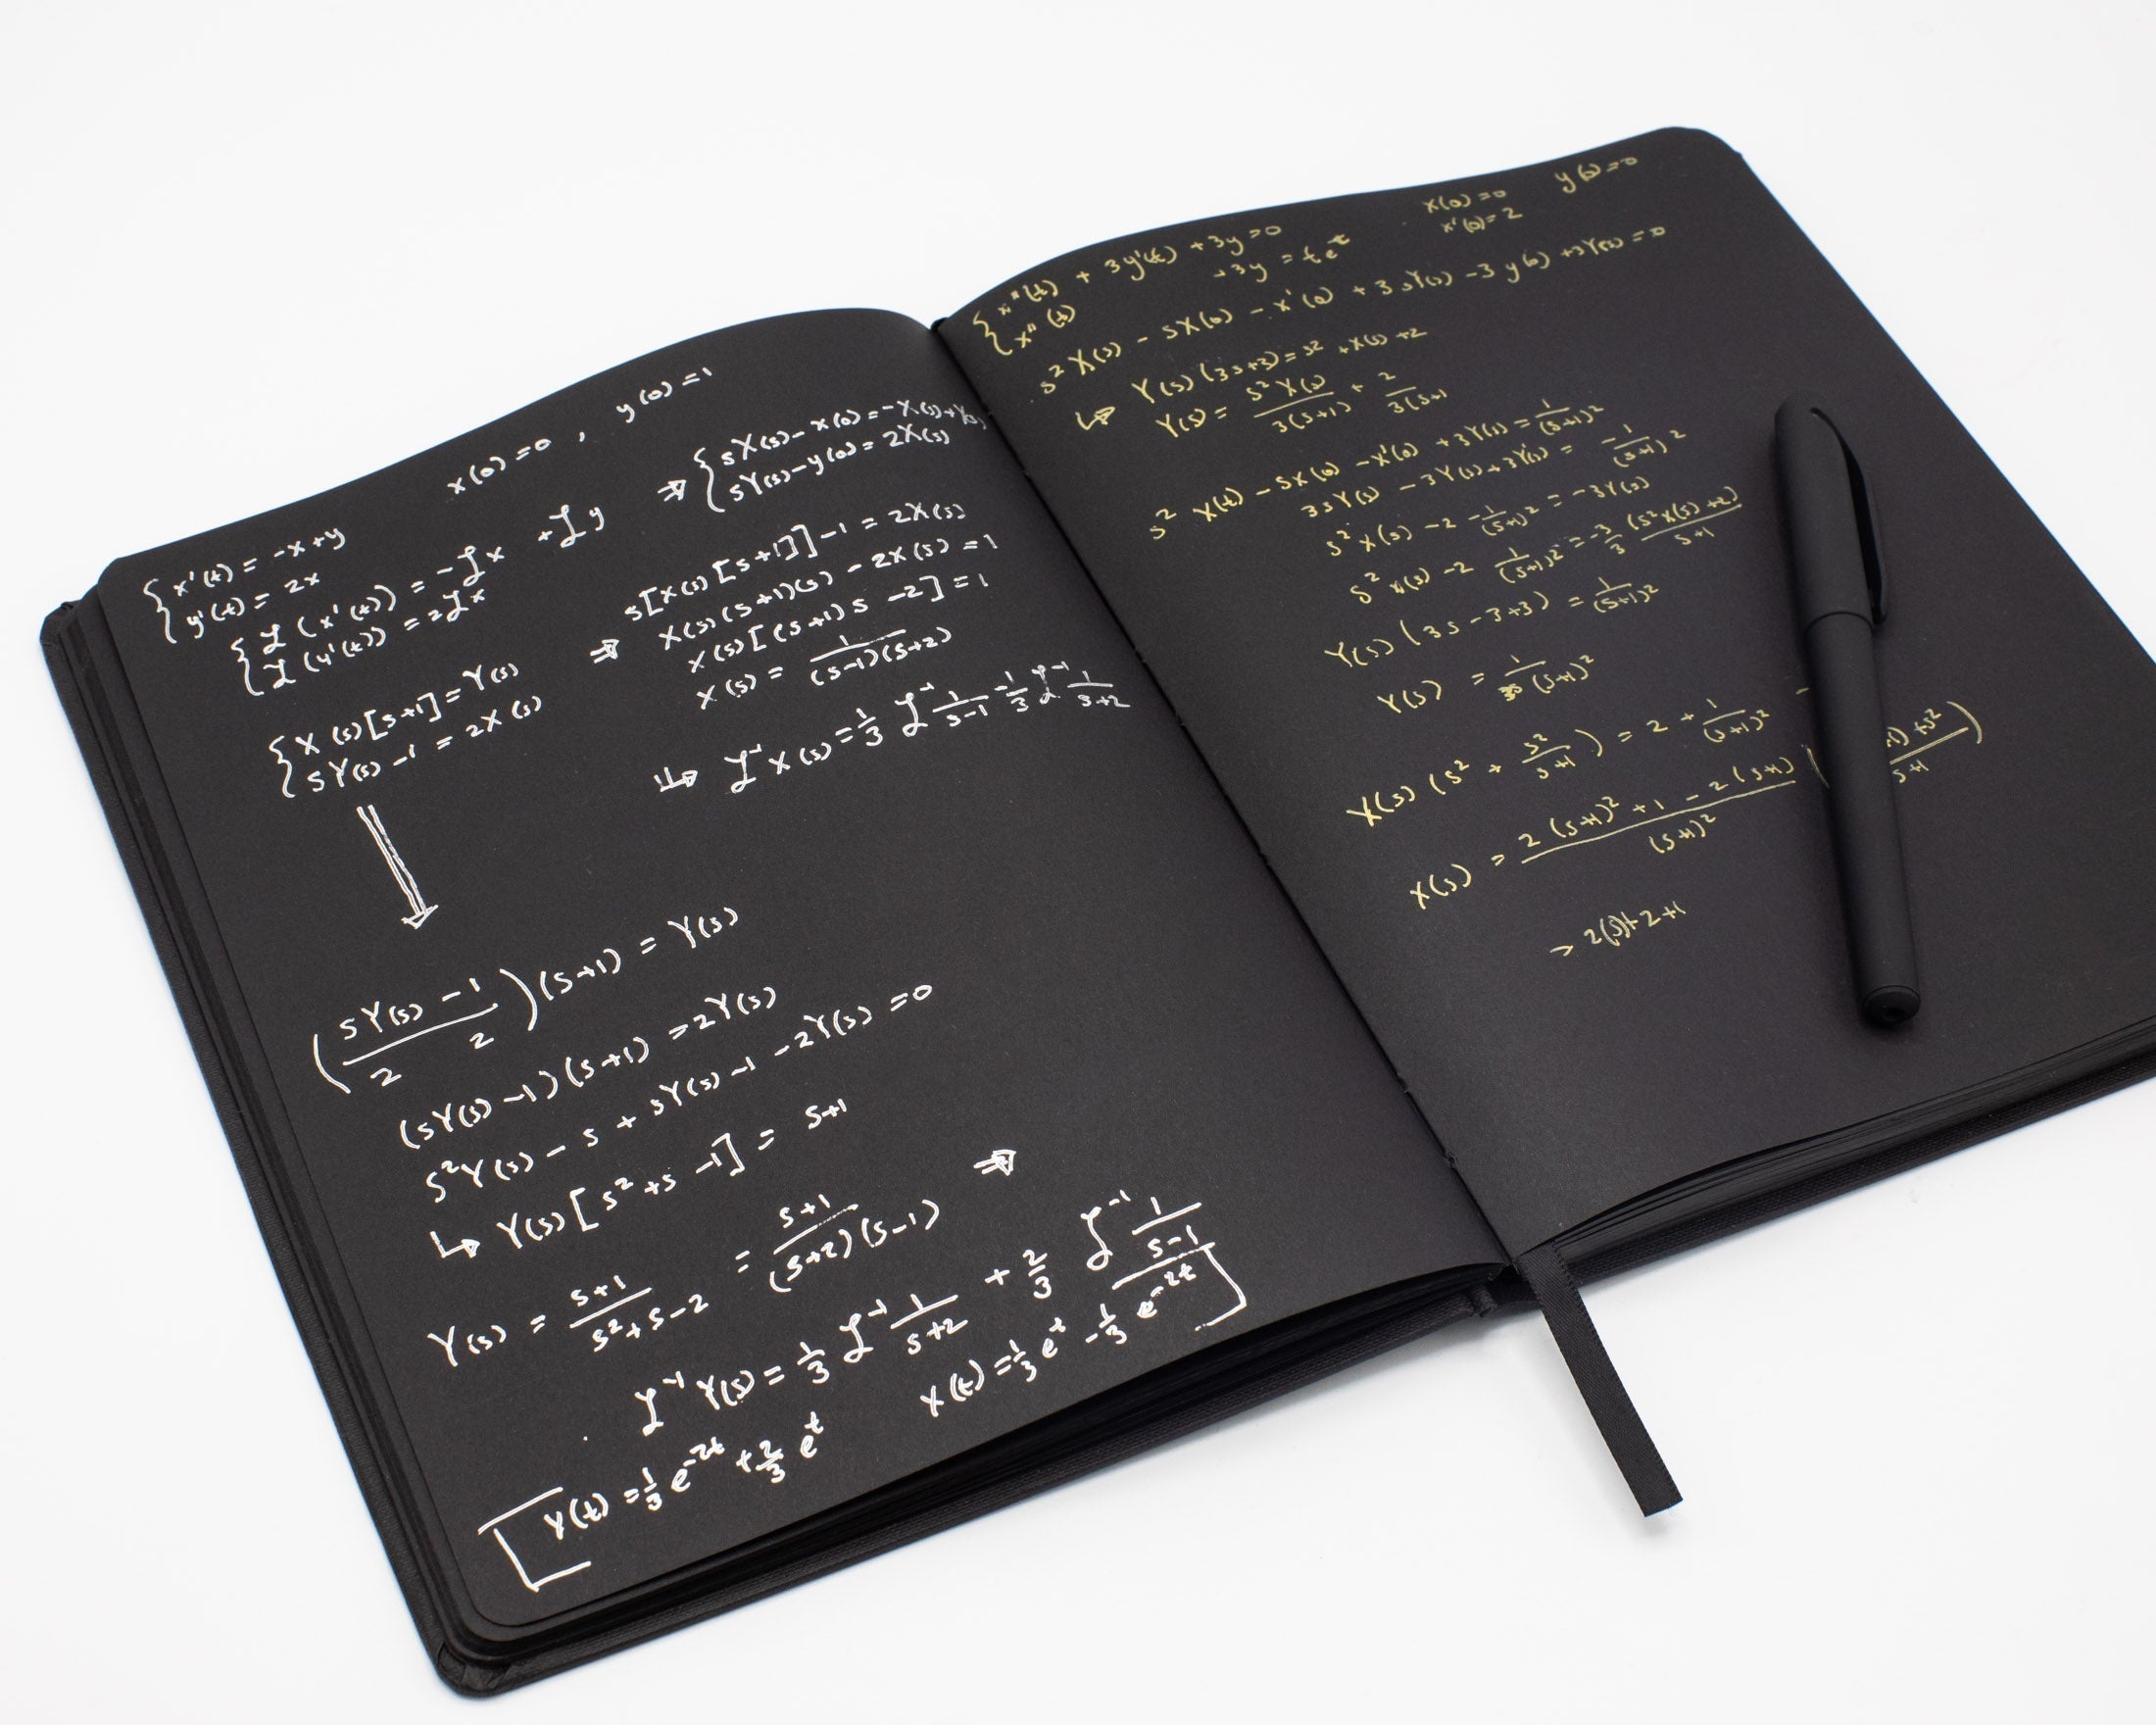 x(0)=0 , y(0)=1
{ x'(t) = -x+y
y'(t) = 2x
{ ℒ(x'(t)) = -ℒx +ℒy
ℒ(y'(t)) = 2ℒx
⇒ { sX(s)-x(0)=-X(s)+Y(s)
sY(s)-y(0)=2X(s)
{ X(s)[s+1]=Y(s)
sY(s)-1 = 2X(s)
⇒ s[X(s)[s+1]]-1 = 2X(s)
X(s)(s+1)(s) - 2X(s) = 1
X(s)[(s+1)s -2] = 1
X(s) = 1/((s-1)(s+2))
↳ ℒ⁻¹X(s) = 1/3 ℒ⁻¹ 1/(s-1) - 1/3 ℒ⁻¹ 1/(s+2)
((sY(s) -1)/2 2)(s+1) = Y(s)
(sY(s)-1)(s+1) = 2Y(s)
s²Y(s) - s + sY(s) -1 -2Y(s) = 0
↳ Y(s)[s²+s -1] = s+1
Y(s) = (s+1)/(s²+s-2) = (s+1)/((s+2)(s-1)) ⇒
ℒ⁻¹Y(s) = 1/3 ℒ⁻¹ 1/(s+2) + 2/3 ℒ⁻¹ 1/(s-1)
Y(t) = 1/3 e^-2t + 2/3 e^t
X(t) = 1/3 e^t - 1/3 e^-2t
{ x''(t) + 3y'(t) + 3y = 0
x''(t) +3y = te^t
x(0) = 0 y(0) = 0
x'(0) = 2
s²X(s) - sX(0) - x'(0) + 3sY(s) -3y(0) +3Y(s) = 0
↳ Y(s)(3s+3) = s² +X(s) +2
Y(s) = s²X(s)/(3(s+1)) + 2/(3(s+1
s² X(t) - sX(0) - x'(0) +3Y(s) = 1/(s+1)²
3sY(s) - 3Y(s)+3Y(s) = -1/(s+1)²
s²X(s) -2 - 1/(s+1)² = -3Y(s)
s²X(s) -2 1/(s+1)² = -3/3 (s²X(s)+2)/(s+1)
Y(s)(3s-3+3) = 1/(s+1)²
Y(s) = 1/(3s(s+1)²)
X(s)(s² + s²/(s+1)) = 2 + 1/(s+1)² -
X(s) = (2(s+1)² +1 -2(s+1))/(s+1)² ( 1)+s²/(s+1) )
→ 2(s)+2+1